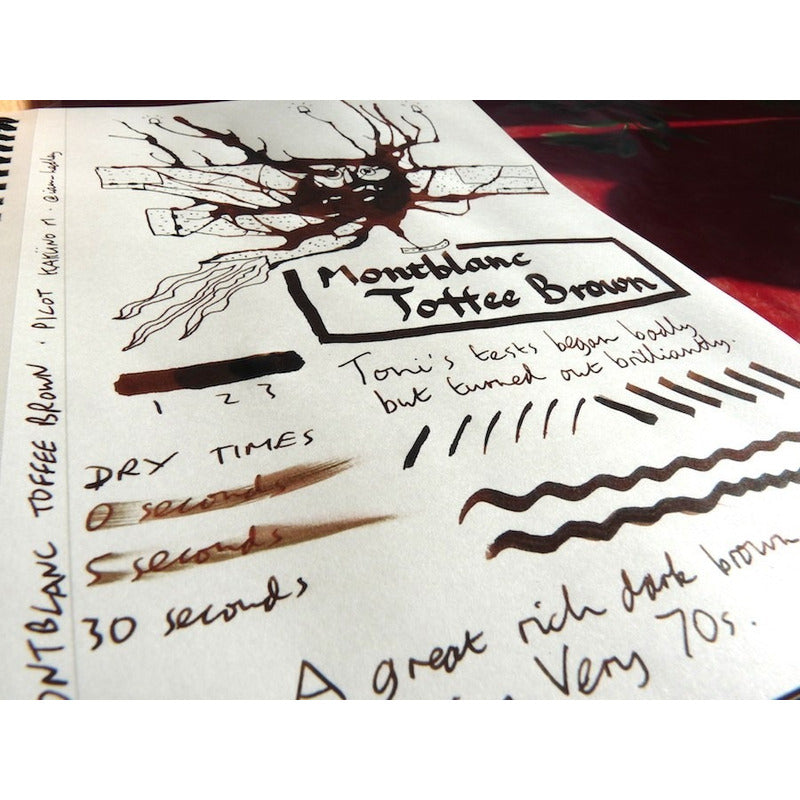 MONTBLANC TOFFEE BROWN · PILOT KAKÜNO M ·
Montblanc
Toffee Brown
Toni's tests began badly
but turned out brilliantly.
1 2 3
DRY TIMES
0 seconds
5 seconds
30 seconds
A great rich dark brown
Very 70s.